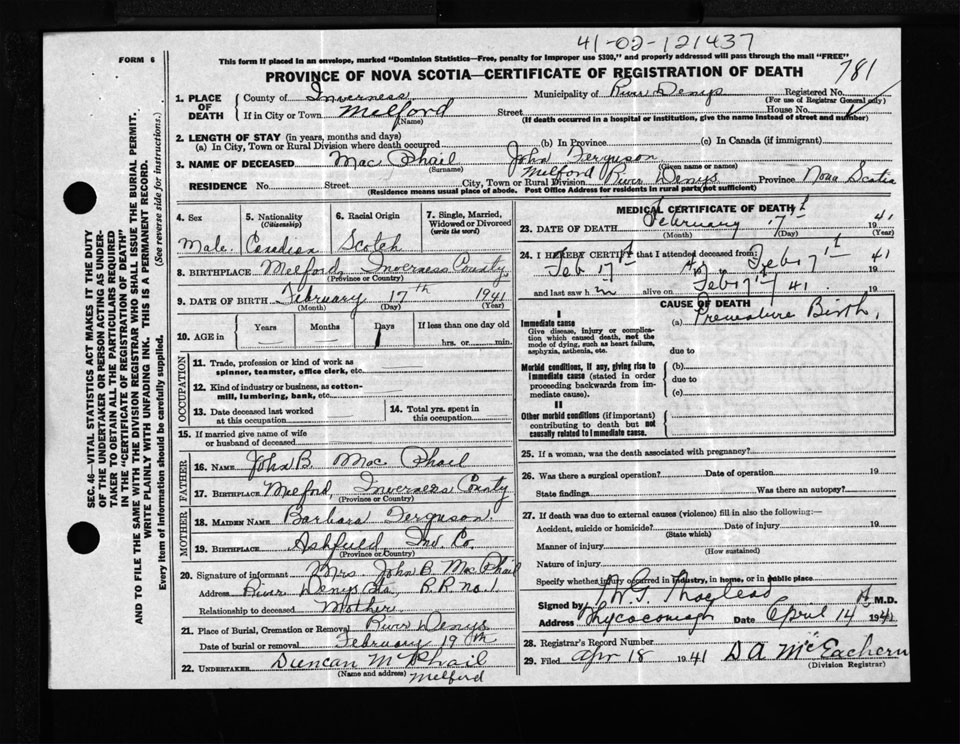 41-02-121437
FORM 6
This form if placed in an envelope, marked "Dominion Statistics—Free, penalty for improper use $300," and properly addressed will pass through the mail "FREE"
PROVINCE OF NOVA SCOTIA—CERTIFICATE OF REGISTRATION OF DEATH
781
SEC. 46—VITAL STATISTICS ACT MAKES IT THE DUTY
OF THE UNDERTAKER OR PERSON ACTING AS UNDER-
TAKER TO OBTAIN ALL THE PARTICULARS REQUIRED
IN THE "CERTIFICATE OF REGISTRATION OF DEATH"
AND TO FILE THE SAME WITH THE DIVISION REGISTRAR WHO SHALL ISSUE THE BURIAL PERMIT.
WRITE PLAINLY WITH UNFADING INK. THIS IS A PERMANENT RECORD.
Every item of information should be carefully supplied. (See reverse side for instructions.)
1. PLACE OF DEATH County of Inverness Municipality of River Denys Registered No.
(For use of Registrar General only)
If in City or Town Melford Street House No.
(Name) (If death occurred in a hospital or institution, give the name instead of street and number)
2. LENGTH OF STAY (in years, months and days)
(a) In City, Town or Rural Division where death occurred (b) In Province (c) In Canada (if immigrant)
3. NAME OF DECEASED Mac Phail John Ferguson
(Surname) (Given name or names)
RESIDENCE No. Street City, Town or Rural Division Melford River Denys Province Nova Scotia
(Residence means usual place of abode. Post Office Address for residents in rural parts not sufficient)
4. Sex 5. Nationality (Citizenship) 6. Racial Origin 7. Single, Married, Widowed or Divorced (write the word)
Male. Canadian Scotch
8. BIRTHPLACE Melford, Inverness County,
(Province or Country)
9. DATE OF BIRTH February 17th 1941
(Month) (Day) (Year)
10. AGE in Years Months Days If less than one day old
1 hrs. or min.
OCCUPATION
11. Trade, profession or kind of work as
spinner, teamster, office clerk, etc.
12. Kind of industry or business, as cotton-
mill, lumbering, bank, etc.
13. Date deceased last worked at this occupation 14. Total yrs. spent in this occupation
15. If married give name of wife
or husband of deceased
FATHER
16. NAME John B. Mac Phail
17. BIRTHPLACE Melford, Inverness County
(Province or Country)
MOTHER
18. MAIDEN NAME Barbara Ferguson.
19. BIRTHPLACE Ashfield, Inv. Co.
(Province or Country)
20. Signature of informant Mrs John B. Mac Phail
Address River Denys Sta, R.R. no. 1.
Relationship to deceased Mother
21. Place of Burial, Cremation or Removal River Denys
Date of burial or removal February 19th
22. UNDERTAKER Duncan McPhail
(Name and address) Melford
MEDICAL CERTIFICATE OF DEATH
23. DATE OF DEATH February 17th 41
(Month) (Day) (Year)
24. I HEREBY CERTIFY that I attended deceased from:
Feb 17th Feb 17th 19 41
and last saw h m alive on Feb 17 41. 19
CAUSE OF DEATH
I
Immediate cause (a) Premature Birth,
Give disease, injury or complica-
tion which caused death, not the
mode of dying, such as heart failure,
asphyxia, asthenia, etc.
due to
Morbid conditions, if any, giving rise to (b)
immediate cause (stated in order due to
proceeding backwards from im-
mediate cause). (c)
II
Other morbid conditions (if important)
contributing to death but not
causally related to immediate cause.
25. If a woman, was the death associated with pregnancy?
26. Was there a surgical operation? Date of operation 19
State findings Was there an autopsy?
27. If death was due to external causes (violence) fill in also the following:—
Accident, suicide or homicide? Date of injury 19
(State which)
Manner of injury
(How sustained)
Nature of injury
Specify whether injury occurred in industry, in home, or in public place
Signed by M.D.
Address Whycocomagh Date April 14th 1941
28. Registrar's Record Number
29. Filed Apr 18 1941 D A McEachern
(Division Registrar)